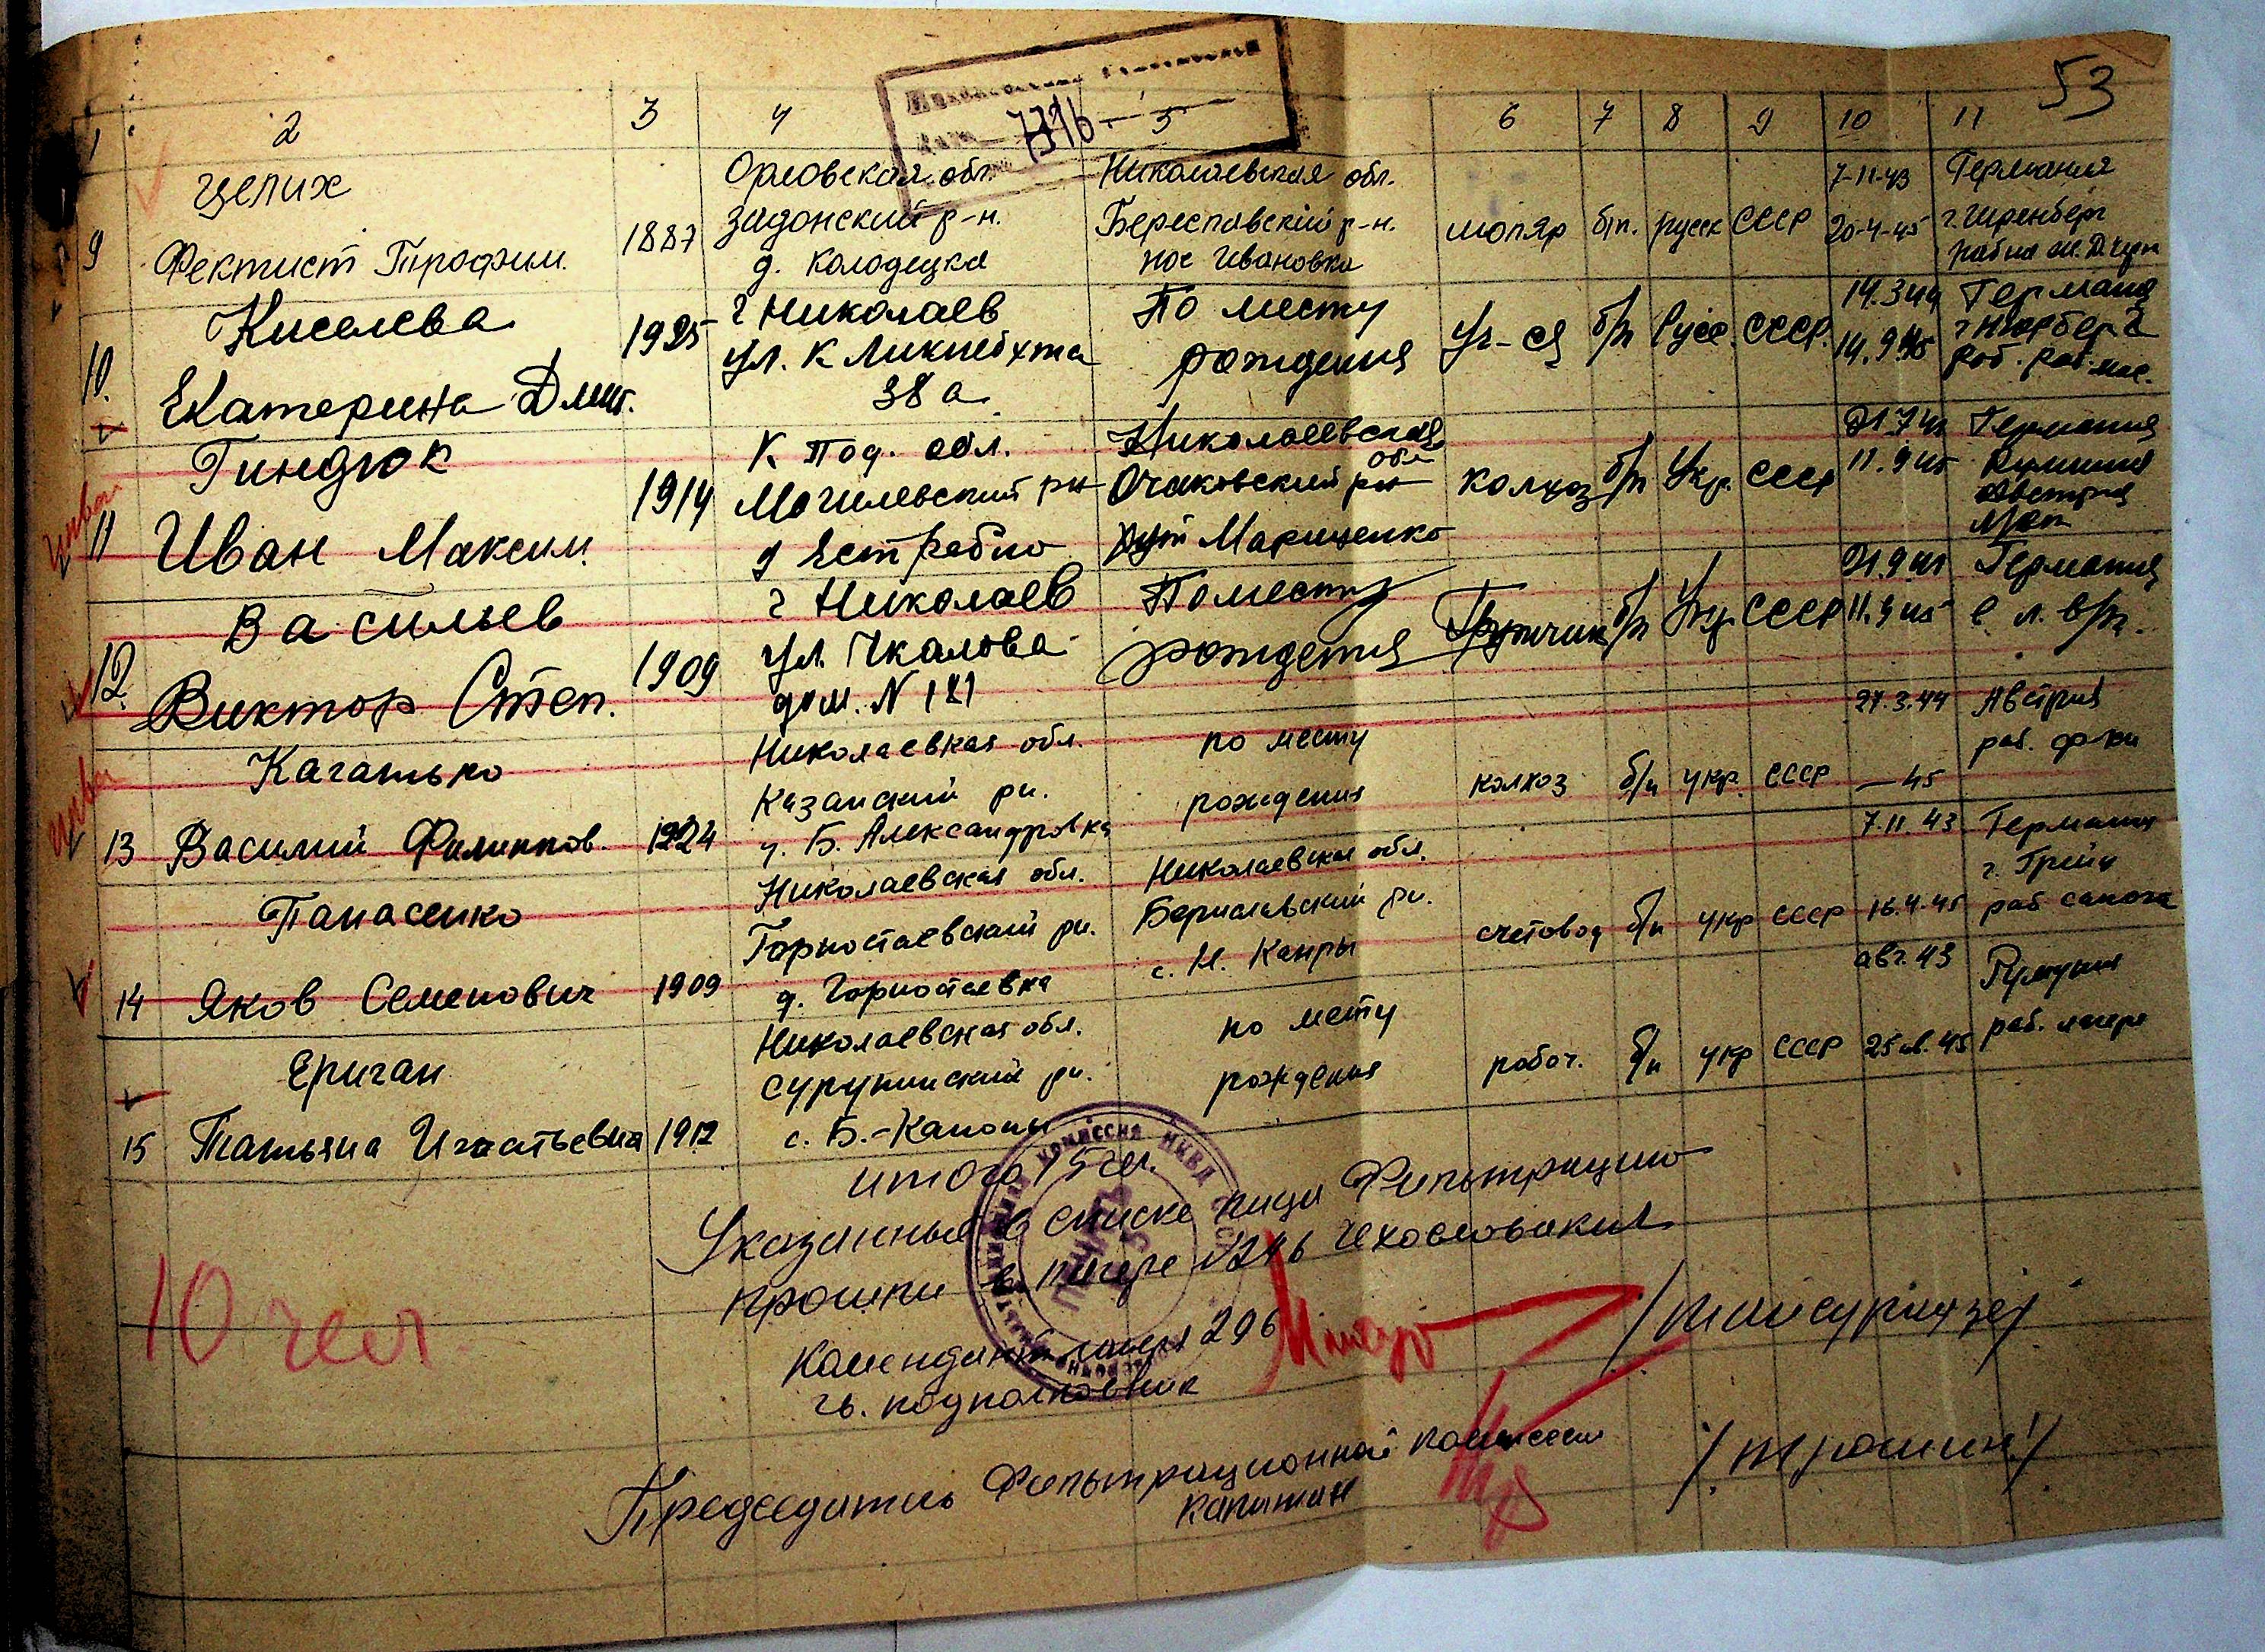 53
1 2 3 4 5 6 7 8 9 10 11
7316
9 Целих
Фектист Трофим. 1887
Орловская обл.
Задонский р-н.
д. Колодецка
Николаевская обл.
Бериславский р-н.
пос Ивановка
моляр б/п. русск СССР
7-11-43
20-4-45
Германия
10. Киселева
Екатерина Дмит. 1925
г Николаев
ул. К Ликнебхта
38 а
По месту
рождения
Уч-ся б/п Русс. СССР.
14.3 44
14.9.45
Германия
11 Гиндюк
Иван Максим. 1914
К Под. обл.
Могилевский рн
д Естребно
Николаевская
обл
Очаковский рн
хут Марищенко
колхоз б/п Укр. СССР
11.9 45
Германия
Румыния
Австрия
12. Васильев
Виктор Степ. 1909
г Николаев
ул. Чкалова
дом. N 121
По месту
рождения
б/п Укр СССР
11.9 45
Германия
с л. в/п.
13 Кагатько
Василий Филиппов. 1924
Николаевкая обл.
Казанский рн.
д. Б. Александровка
по месту
рождения
колхоз б/п укр. СССР
27.3.44
— 45
Австрия
раб. ф-ки
14 Панасенко
Яков Семенович 1909
Николаевская обл.
Горностаевский рн.
д. Горностаевка
Николаевская обл.
Бериславский рн.
с. Н. Каиры
счетовод б/п укр СССР
7.11.43
16.4.45
Германия
г. Грейц
раб
15 Ериган
Татьяна Игнатьевна 1912
Николаевская обл.
Сурупинский рн.
с. Б.-Капоны
по месту
рождения
рабоч. б/п укр СССР
авг. 43
25 45
Румыния
раб. лагере
итого 15 чел.
Указанные в списке лица Фильтрацию
прошли в лагере Чехословакия
Комендант лагеря 296
гв. подполковник
10 чел.
Председатель Фильтрационной комиссии
капитан
/Трошин/